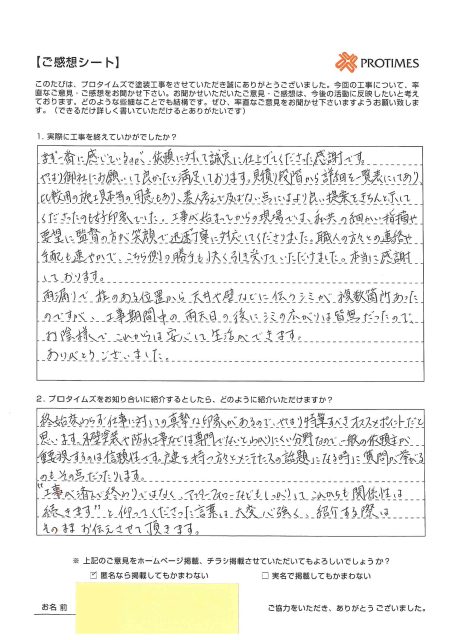 【ご感想シート】
PROTIMES
このたびは、プロタイムズで塗装工事をさせていただき誠にありがとうございました。今回の工事について、率
直なご意見・ご感想をお聞かせ下さい。お聞かせいただいたご意見・ご感想は、今後の活動に反映したいと考え
ております、どのような些細なことでも結構です。ぜひ、率直なご意見をお聞かせ下さいますようお願い致しま
す。（できるだけ詳しく書いていただけるとありがたいです）
1. 実際に工事を終えていかがでしたか？
まず一番に感じているのが、依頼に対して誠実に仕上げてくださった感謝です。
やはり御社にお願いして良かったと満足しております。見積り段階から詳細を一覧表にしてあり、
比較用の施工見本の用意もあり、素人考えで及ばない点にはより良い提案をきちんとして
くださったのも好印象でした。工事が始まってからの現場では、私共の細かい指摘や
要望に監督の方が笑顔で迅速丁寧に対応してくださりました。職人の方々との連絡や
手配も速やかで、こちら側の勝手も快く引き受けていただけました。本当に感謝
しております。
雨漏りで、柱のある位置から天井や壁などに伝うシミが、複数箇所あった
のですが、工事期間中の雨天日の後にシミの広がりは皆無だったので、
お陰様で、これからは安心して生活ができます。
ありがとうございました。
2. プロタイムズをお知り合いに紹介するとしたら、どのように紹介いただけますか？
終始変わらず仕事に対しての真摯な印象があるので、やはり特筆すべきオススメポイントだと
思います。外壁塗装や防水工事などは専門でないとわかりにくい分野なので一般の依頼者が
重要視するのは信頼性です。戸建を持つ方とメンテナンスの話題になる時に質問が挙がる
のもその点だったりします。
"工事が済んで終わりではなく、アフターフォローなどもしっかりして、これからも関係性は
続きます"と仰ってくださった言葉は、大変心強く、紹介する際は
そのままお伝えさせて頂きます。
※ 上記のご意見をホームページ掲載、チラシ掲載させていただいてもよろしいでしょうか？
☑ 匿名なら掲載してもかまわない □ 実名で掲載してもかまわない
お名前
ご協力をいただき、ありがとうございました。